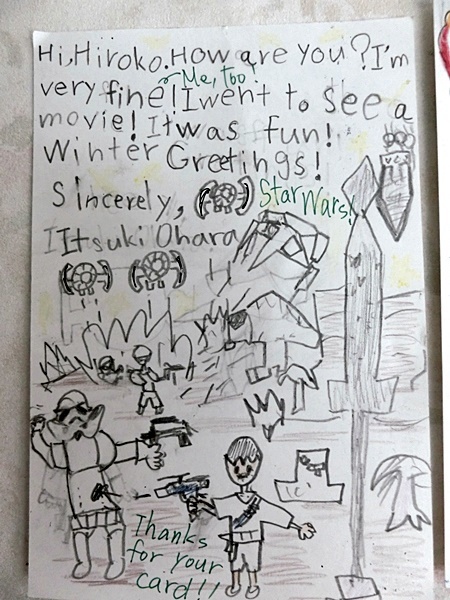 Hi, Hiroko. How are you? I'm
Me, too!
very fine! I went to see a
movie! It was fun!
Winter Greetings!
Sincerely,
Star Wars!
Itsuki Ohara
Thanks
for your
card!!